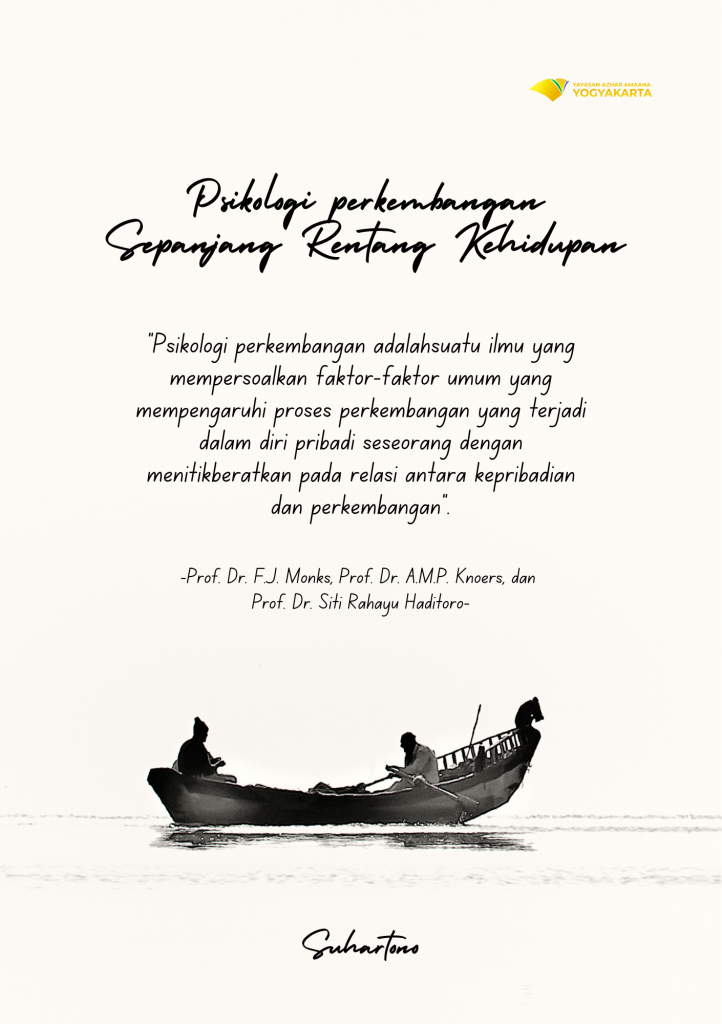 YAYASAN AZHAR AMAANA
YOGYAKARTA
Psikologi perkembangan
Sepanjang Rentang Kehidupan
"Psikologi perkembangan adalahsuatu ilmu yang
mempersoalkan faktor-faktor umum yang
mempengaruhi proses perkembangan yang terjadi
dalam diri pribadi seseorang dengan
menitikberatkan pada relasi antara kepribadian
dan perkembangan".
-Prof. Dr. F.J. Monks, Prof. Dr. A.M.P. Knoers, dan
Prof. Dr. Siti Rahayu Haditoro-
Suhartono